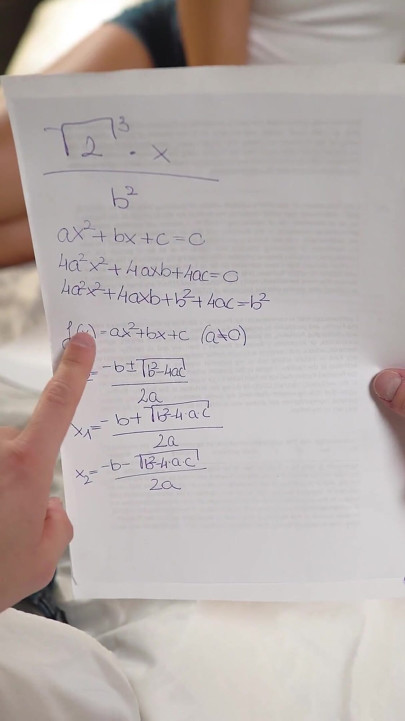 √2³ · x
b²
ax²+bx+c=c
4a²x²+4axb+4ac=0
4a²x²+4axb+b²+4ac=b²
=ax²+bx+c (a≠0)
-b±√b²-4ac
2a
x₁=-b+√b²-4·a·c
2a
x₂=-b-√b²-4·a·c
2a